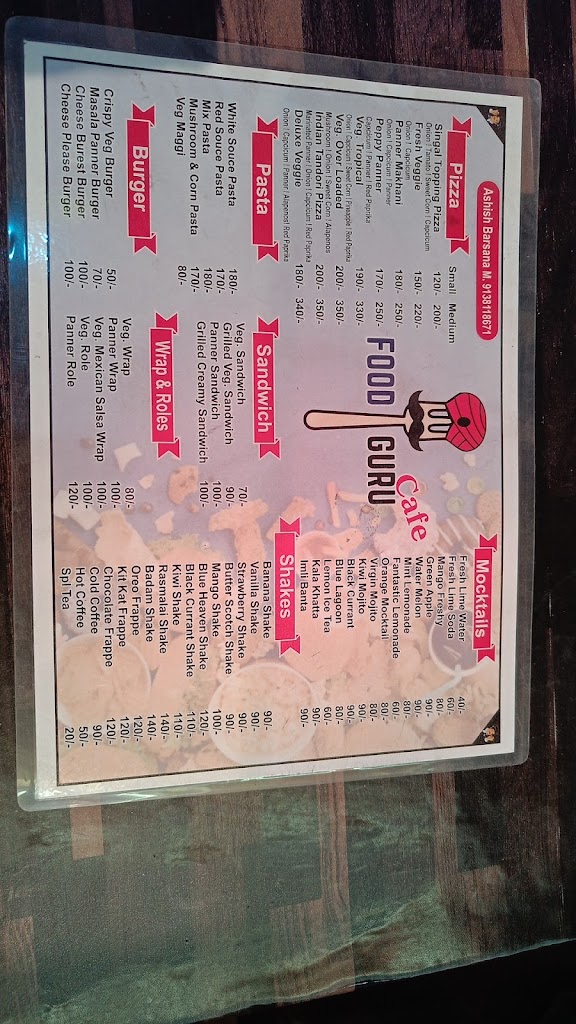 Ashish Barsana M. 9138118671
Pizza Small Medium
Singal Topping Pizza 120/- 200/-
Onion | Tomato | Sweet Corn | Capcicum
Fresh Veggie 150/- 220/-
Onion | Capcicum
Panner Makhani 180/- 250/-
Onion | Capcicum | Panner
Peppy Panner 170/- 250/-
Capcicum | Panner | Red Paprika
Veg. Tropical 190/- 330/-
Veg. Over Loaded 200/- 350/-
Indian Tandori Pizza 200/- 350/-
Deluxe Veggie 180/- 340/-
Onion | Capcicum | Panner | Alapenos| Red Paprika
Pasta
White Souce Pasta 180/-
Red Souce Pasta 170/-
Mix Pasta 180/-
Mushroom & Corn Pasta 170/-
Veg Maggi 80/-
Burger
Crispy Veg Burger 50/-
Masala Panner Burger 70/-
Cheese Burest Burger 100/-
Cheese Please Burger 100/-
FOOD GURU
Cafe
Sandwich
Veg. Sandwich 70/-
Grilled Veg. Sandwich 90/-
Panner Sandwich 100/-
Grilled Creamy Sandwich 100/-
Wrap & Roles
Veg. Wrap 80/-
Panner Wrap 100/-
Veg. Mexican Salsa Wrap 100/-
Veg. Role 100/-
Panner Role 120/-
Mocktails
Fresh Lime Water 40/-
Fresh Lime Soda 60/-
Mango Freshy 80/-
Green Apple 90/-
Water Melon 90/-
Mint Lemonade 80/-
Fantastic Lemonade 60/-
Orange Mocktail 80/-
Virgin Mojito 80/-
Kiwi Mojito 90/-
Black Currant 90/-
Blue Lagoon 80/-
Lemon Ice Tea 60/-
Kala Khatta 90/-
Imli Banta 90/-
Shakes
Banana Shake 90/-
Vanilla Shake 90/-
Strawberry Shake 90/-
Butter Scotch Shake 90/-
Mango Shake 100/-
Blue Heaven Shake 120/-
Black Currant Shake 110/-
Kiwi Shake 110/-
Rasmalai Shake 140/-
Badam Shake 140/-
Oreo Frappe 120/-
Kit Kat Frappe 120/-
Chocolate Frappe 120/-
Cold Coffee 90/-
Hot Coffee 50/-
Spl Tea 20/-